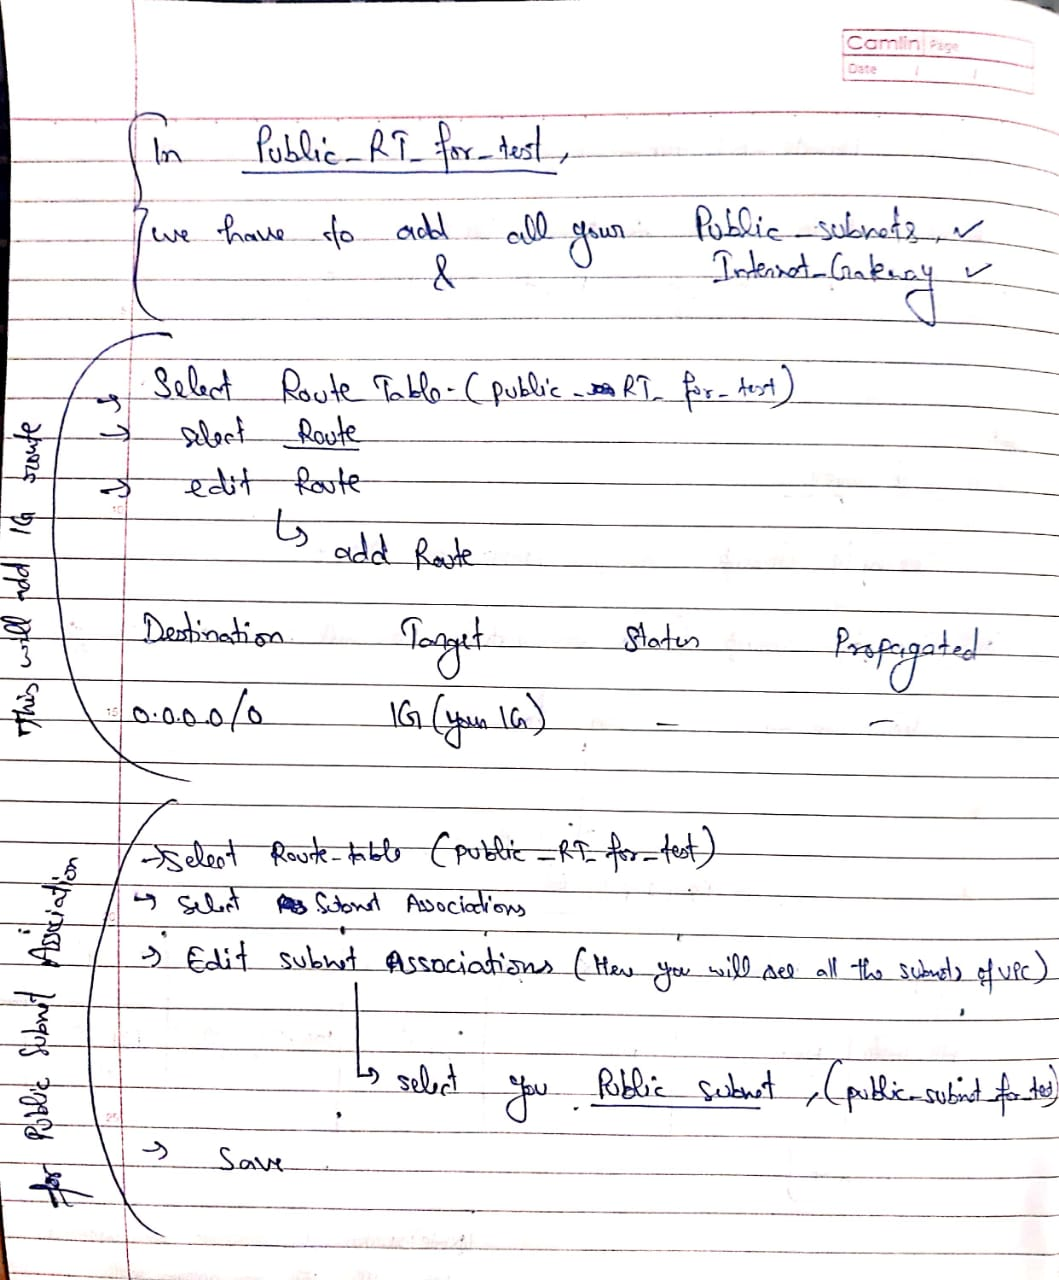 Camlin Page
Date / /
In Public_RT_for_test,
we have to add all your Public_subnets, ✓
& Internet_Gateway ✓
This will add IG route
→ Select Route Table-(public_RT_for_test)
→ select Route
→ edit Route
↳ add Route
Destination Target Status Propagated
0.0.0.0/0 IG (your IG) - -
for Public Subnet Association
→ select Route-table (public_RT_for_test)
→ select Subnet Associations
→ Edit subnet Associations (Here you will see all the subnets of VPC)
↳ select you Public subnet, (public-subnet_for_test)
→ Save